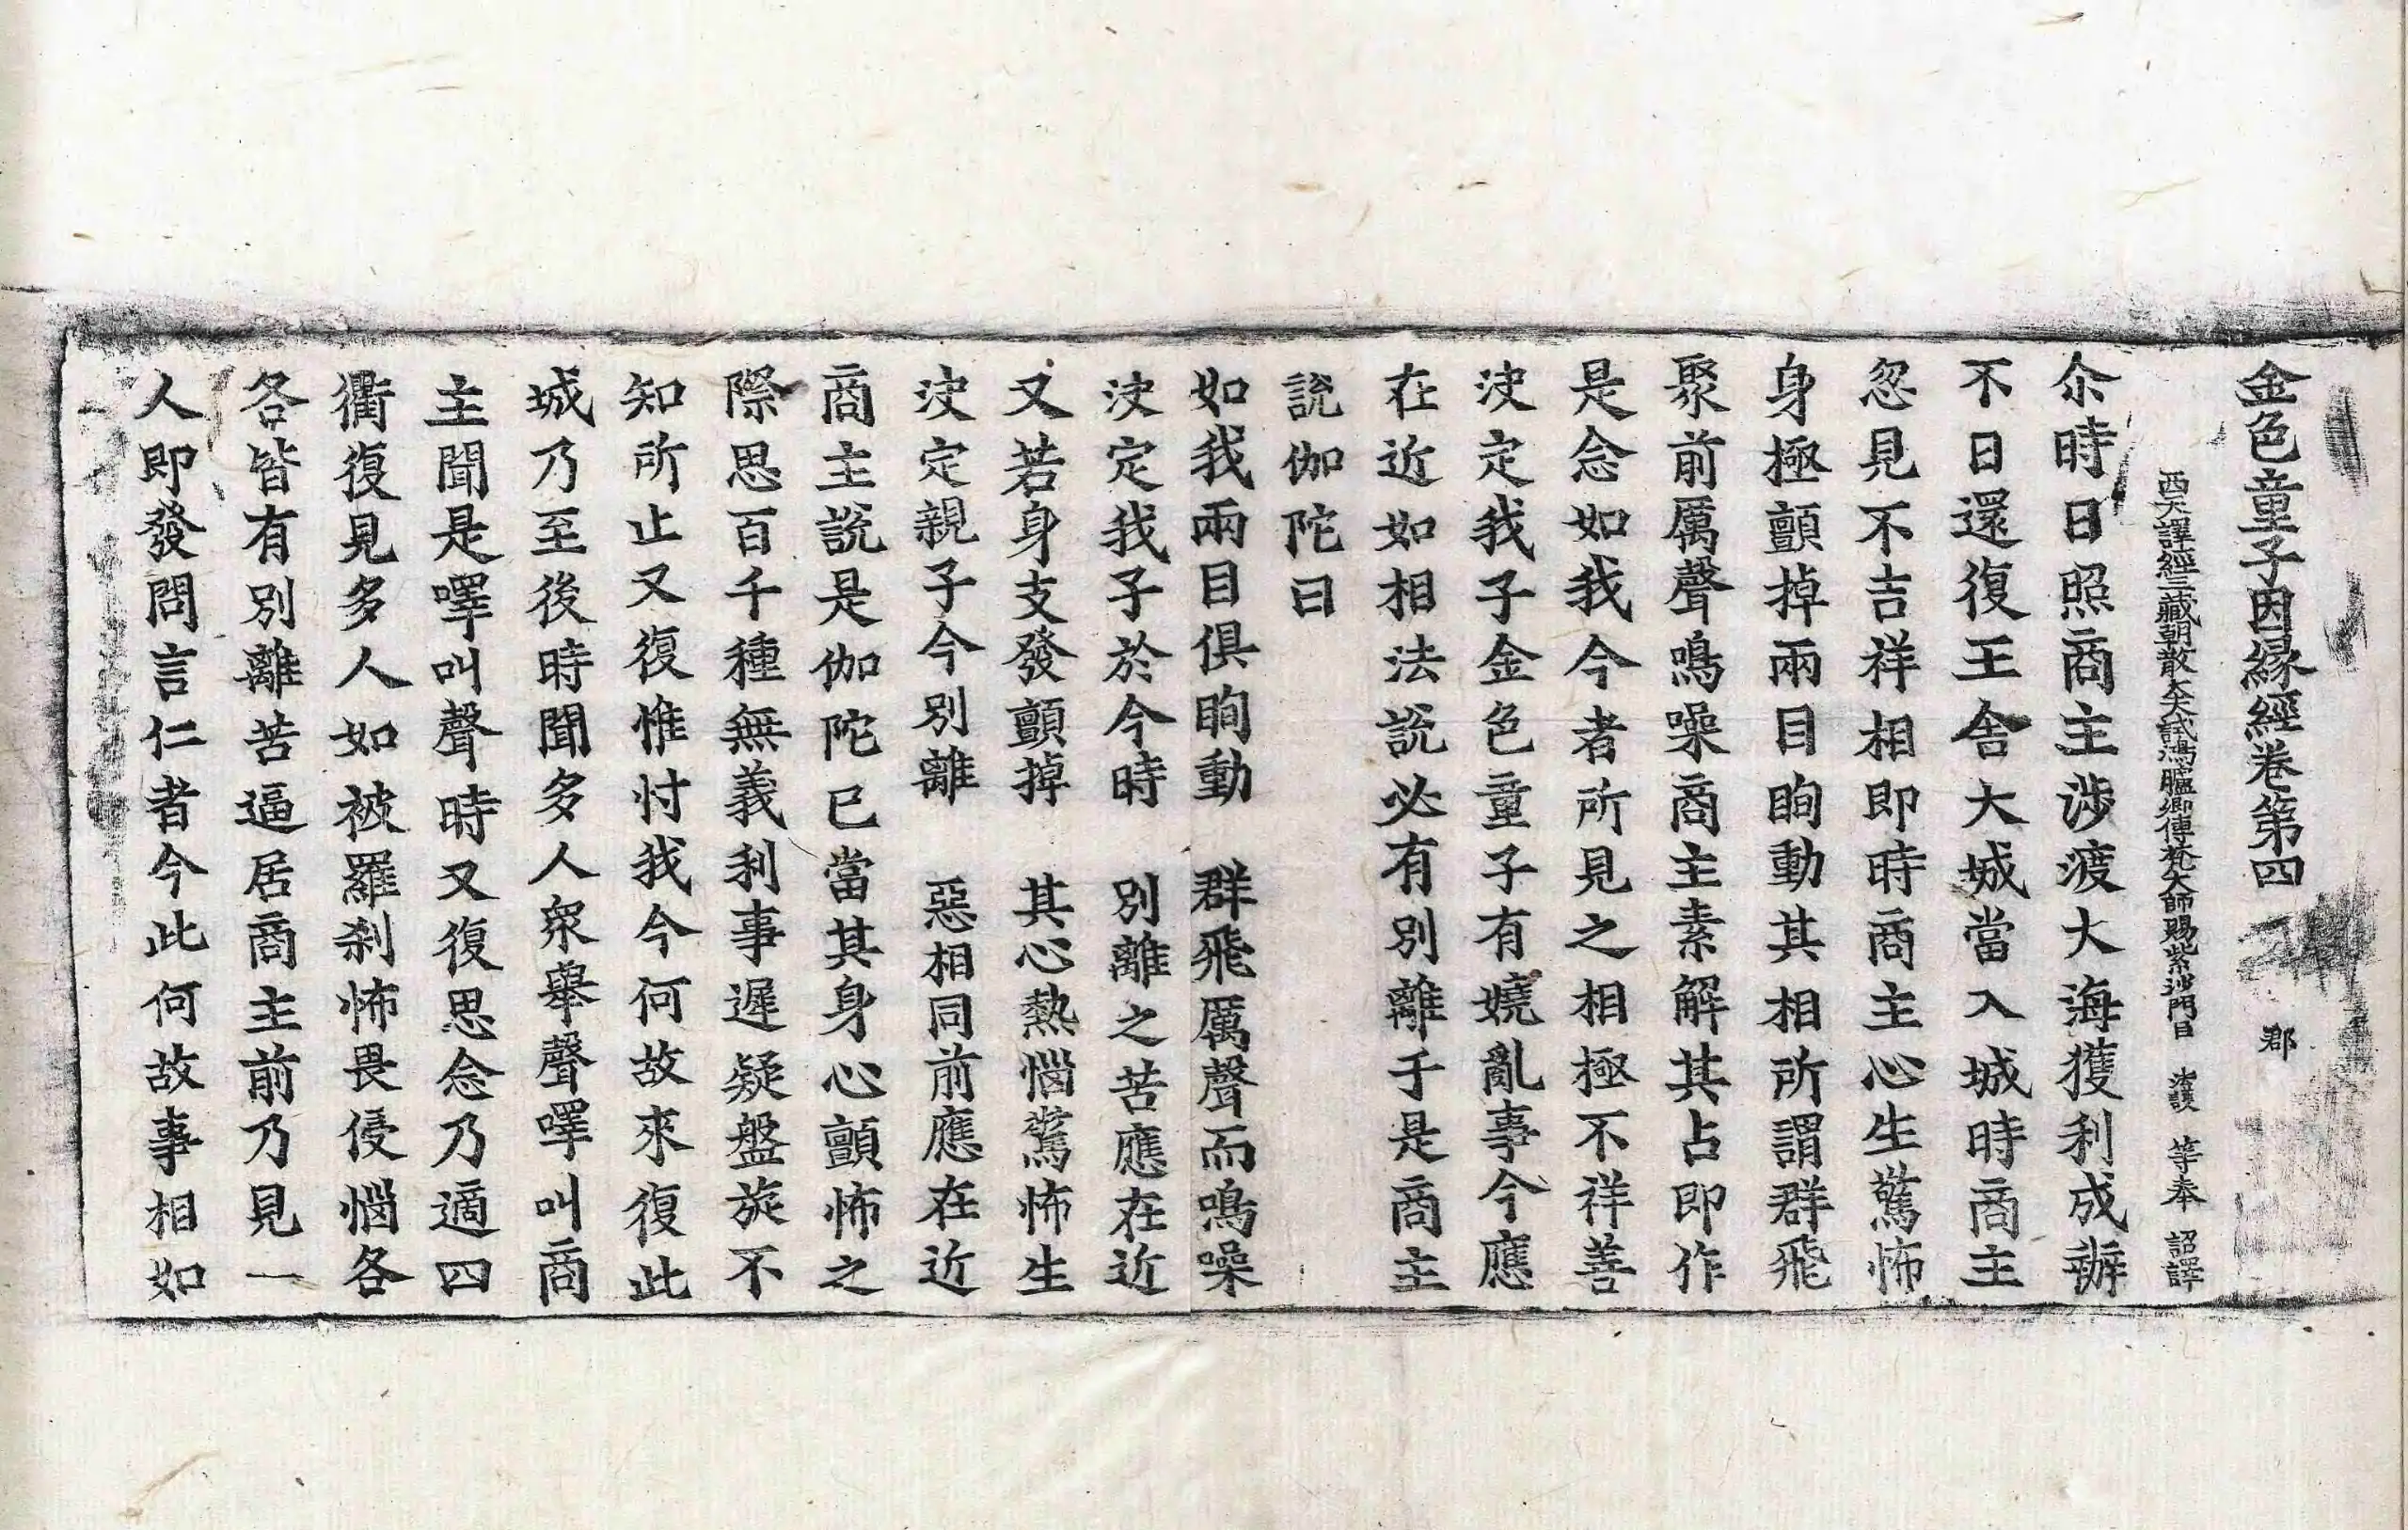 金色童子因緣經卷第四 郡
西天譯經三藏朝散大夫試鴻臚卿傳梵大師賜紫沙門臣 法護 等奉 詔譯
尒時日照商主涉渡大海獲利成辦
不日還復王舍大城當入城時商主
忽見不吉祥相即時商主心生驚怖
身極顫掉兩目眴動其相所謂群飛
聚前厲聲鳴噪商主素解其占即作
是念如我今者所見之相極不祥善
决定我子金色童子有嬈亂事今應
在近如相法說必有別離于是商主
說伽陀曰
如我兩目俱眴動 群飛厲聲而鳴噪
决定我子於今時 別離之苦應在近
又若身支發顫掉 其心熱惱驚怖生
决定親子今別離 惡相同前應在近
商主說是伽陀已當其身心顫怖之
際思百千種無義利事遲疑盤旋不
知所止又復惟忖我今何故來復此
城乃至後時聞多人衆舉聲嘷叫商
主聞是嘷叫聲時又復思念乃適四
衢復見多人如被羅刹怖畏侵惱各
各皆有別離苦逼居商主前乃見一
人即發問言仁者今此何故事相如